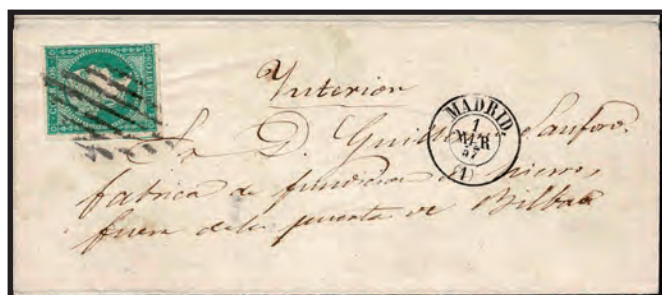 CORREOS CUARTOS
Interior
MADRID.
1
MAR
57
(1)
Sr D. Guillermo Sanford.
fabrica de fundicion de hierro,
fuera de la puerta de Bilbao